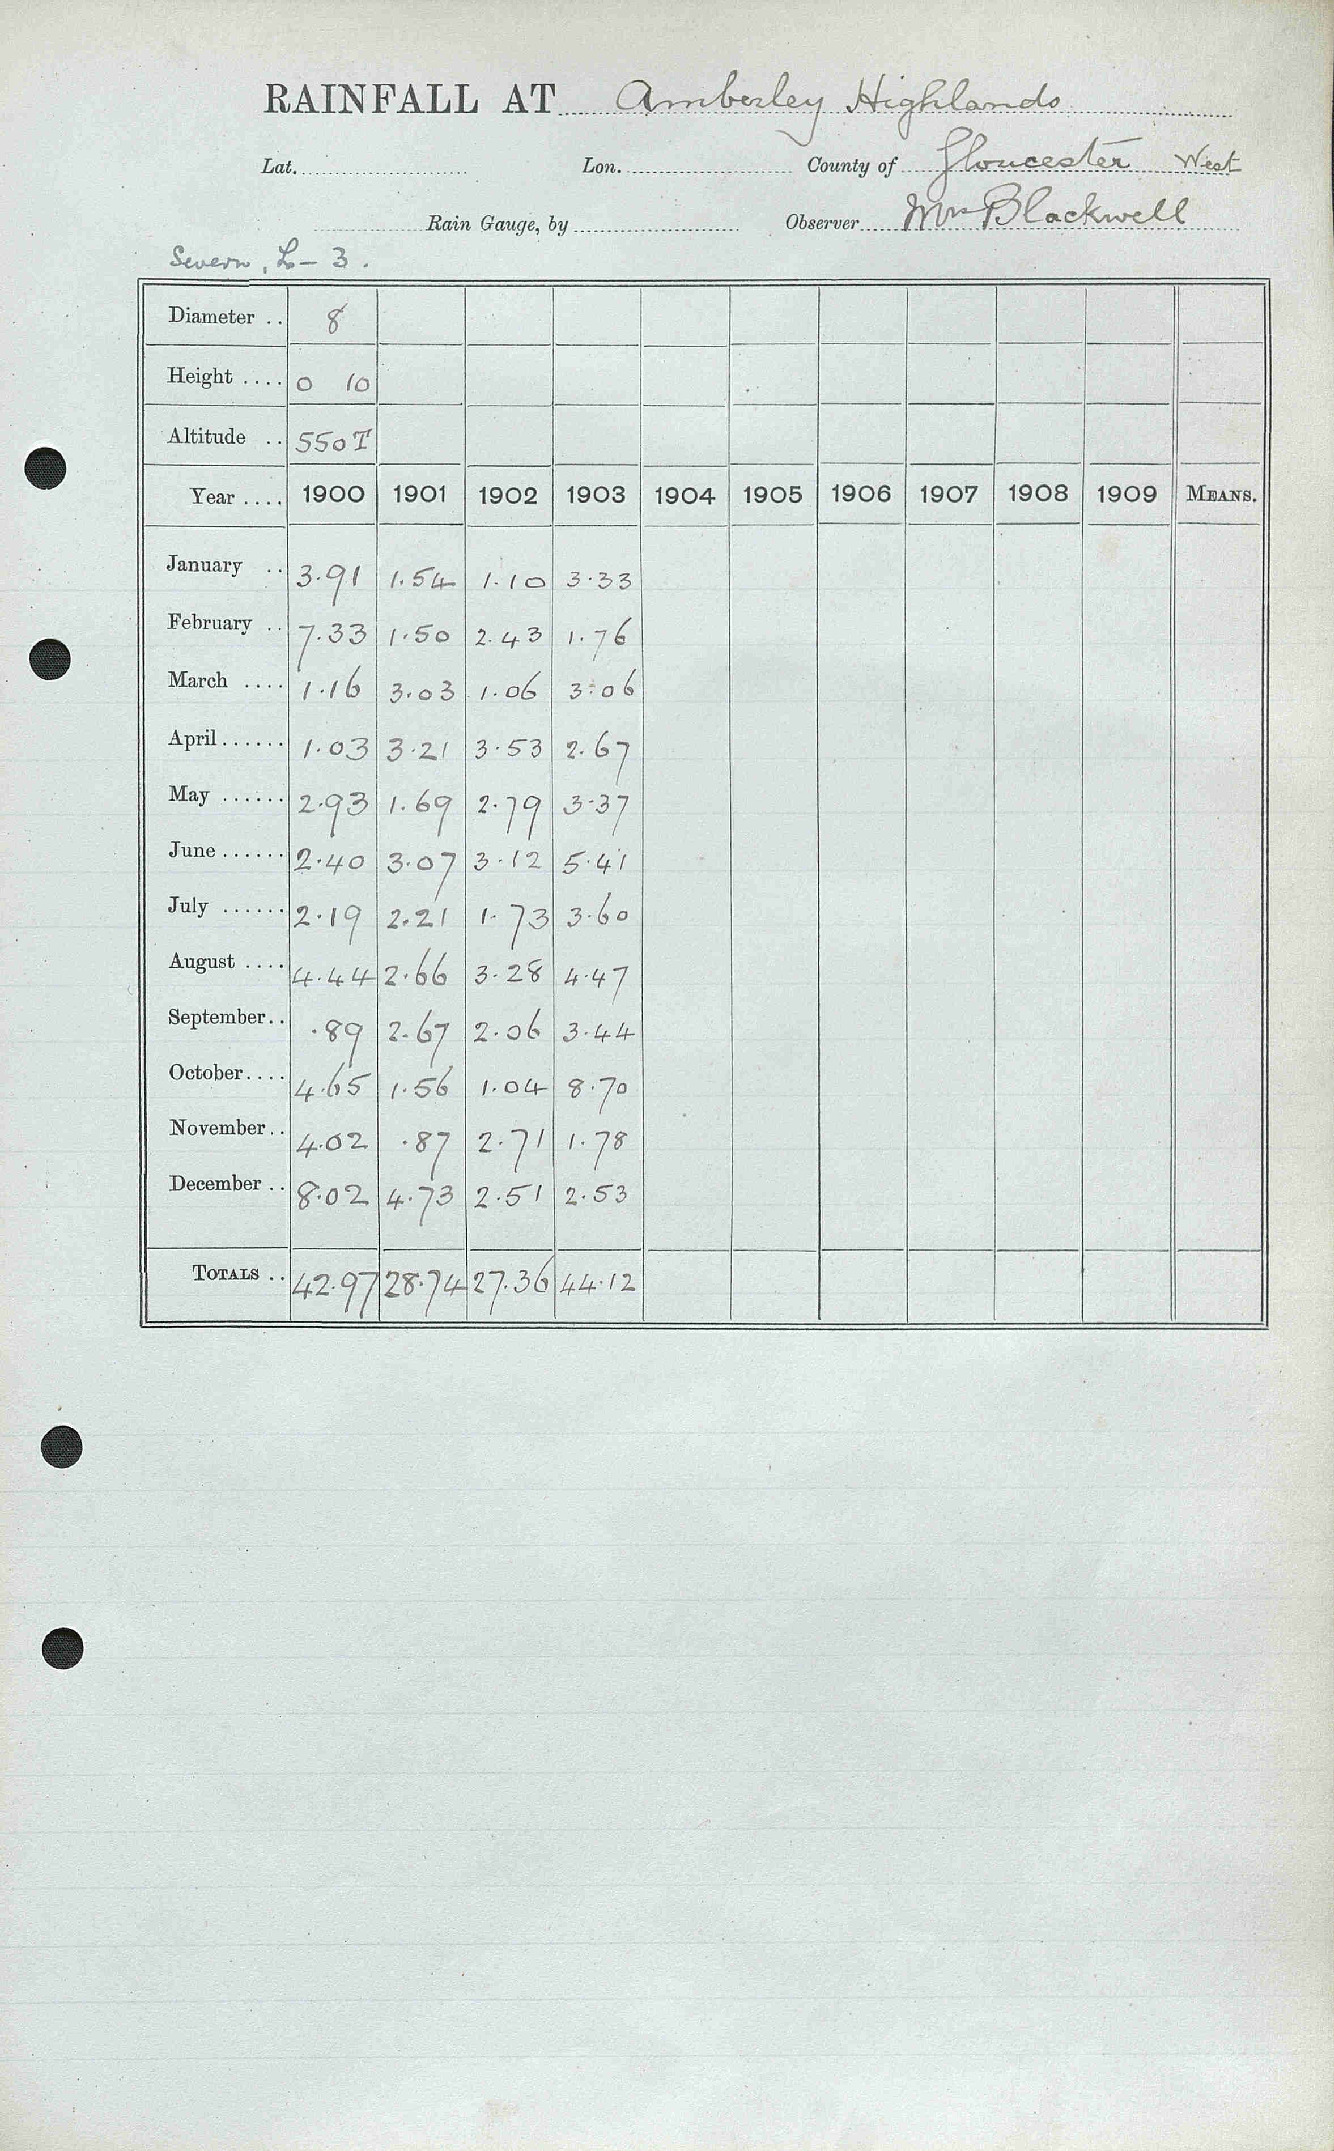 RAINFALL AT Amberley Highlands
Lat. Lon. County of Gloucester West
Rain Gauge, by Observer Mrs Blackwell
Severn, L-3.
Diameter .. 8
Height .... 0 10
Altitude .. 550T
Year .... 1900 1901 1902 1903 1904 1905 1906 1907 1908 1909 MEANS.
January .. 3.91 1.54 1.10 3.33
February .. 7.33 1.50 2.43 1.76
March .... 1.16 3.03 1.06 3.06
April ...... 1.03 3.21 3.53 2.67
May ...... 2.93 1.69 2.79 3.37
June ...... 2.40 3.07 3.12 5.41
July ...... 2.19 2.21 1.73 3.60
August .... 4.44 2.66 3.28 4.47
September.. .89 2.67 2.06 3.44
October.... 4.65 1.56 1.04 8.70
November.. 4.02 .87 2.71 1.78
December .. 8.02 4.73 2.51 2.53
TOTALS .. 42.97 28.74 27.36 44.12